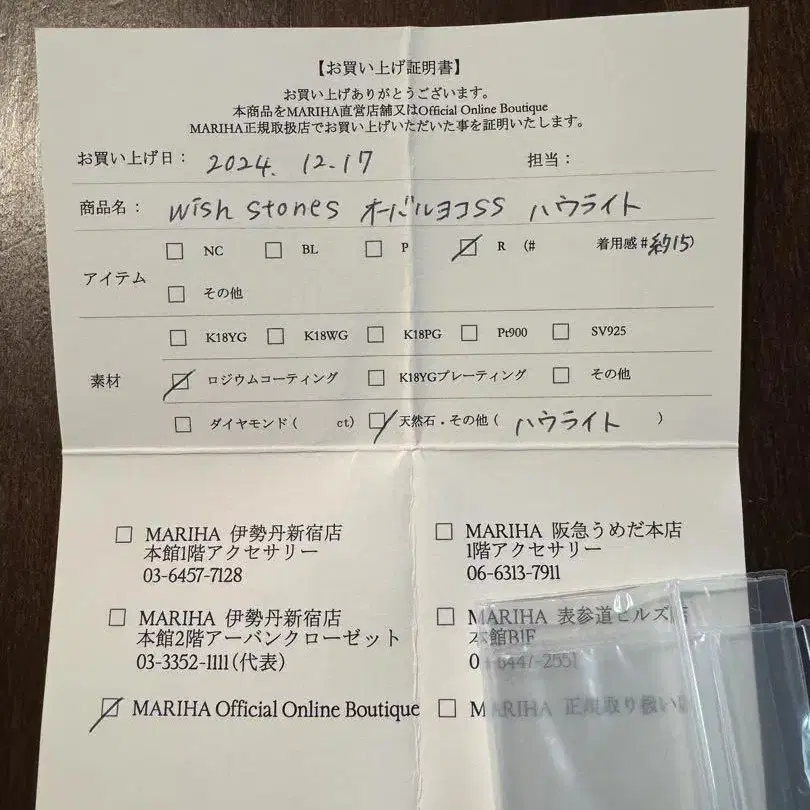 【お買い上げ証明書】
お買い上げありがとうございます。
本商品をMARIHA直営店舗又はOfficial Online Boutique
MARIHA正規取扱店でお買い上げいただいた事を証明いたします。
お買い上げ日： 2024. 12.17 担当：
商品名： wish stones オーバルヨコSS ハウライト
アイテム
NC BL P R (# 着用感#約15)
その他
素材
K18YG K18WG K18PG Pt900 SV925
ロジウムコーティング K18YGプレーティング その他
ダイヤモンド( ct) 天然石・その他( ハウライト )
MARIHA 伊勢丹新宿店
本館1階アクセサリー
03-6457-7128
MARIHA 阪急うめだ本店
1階アクセサリー
06-6313-7911
MARIHA 伊勢丹新宿店
本館2階アーバンクローゼット
03-3352-1111(代表)
MARIHA 表参道ヒルズ店
本館B1F
6447-2551
MARIHA Official Online Boutique
MARIHA 正規取り扱い